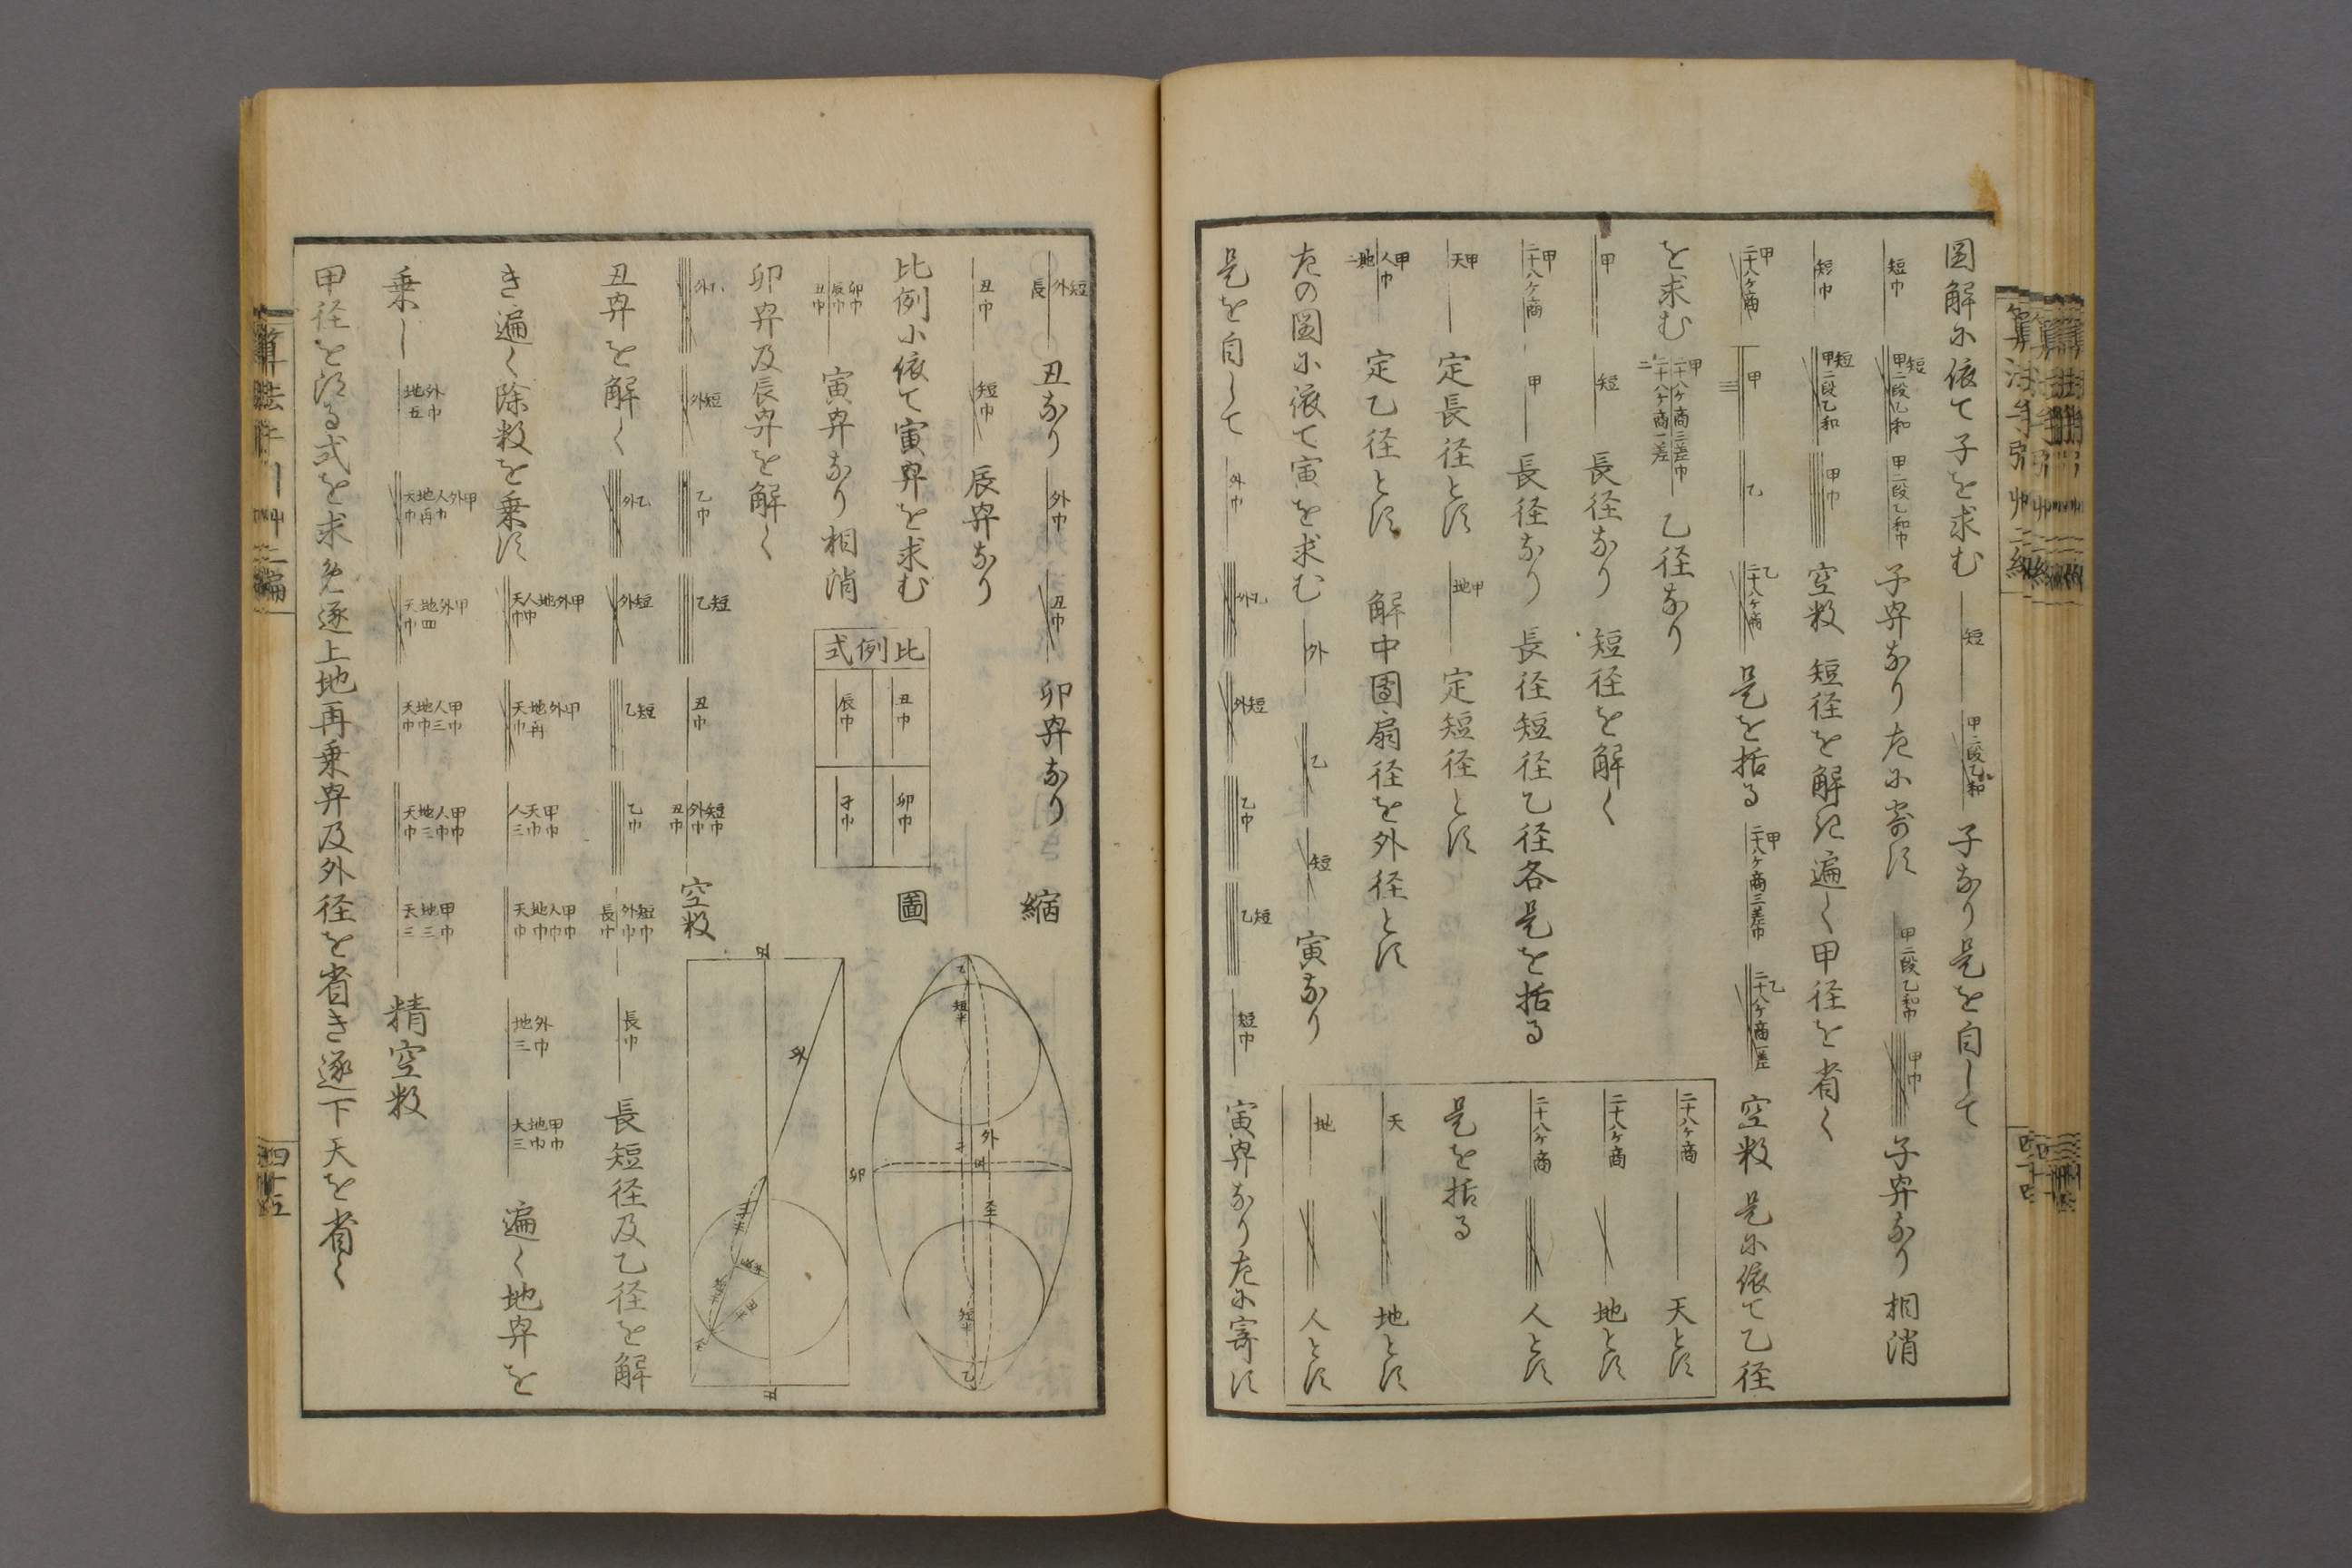 圓解ニ依て子を求む 短 甲二段乙和 子なり是を自して
短巾 短甲二段乙和 甲二段乙和巾 子冪なり左ニ寄す 甲二段乙和巾 甲巾 子冪なり 相消
短巾 短甲二段乙和 甲巾 空数 短径を解き遍く甲径を省く
甲二十八ヶ商 甲 乙 乙二十八ヶ商 是を括る 甲二十八ヶ商三差巾 乙二十八ヶ商一差 空数 是ニ依て乙径
を求む 甲二十八ヶ商三差巾 二十八ヶ商一差 乙径なり
甲 短 長径なり 短径を解く
甲二十八ヶ商 甲 長径なり 長径短径乙径各是を括る
甲天 定長径とす 甲地 定短径とす
甲人巾地二 定乙径とす 解中圓扇径を外径とす
二十八ヶ商 天とす
二十八ヶ商 地とす
二十八ヶ商 人とす
是を括る
天 地とす
地 人とす
左の圓ニ依て寅を求む 外 乙 短 寅なり
是を自して 外巾 外乙 外短 乙巾 乙短 短巾 寅冪なり左ニ寄す
短外長 丑なり 外巾 丑巾 卯冪なり
丑巾 短巾 辰冪なり
比例ニ依て寅冪を求む
卯巾辰巾丑巾 寅冪なり 相消
比例式
丑巾 卯巾
辰巾 子巾
縮
圖
卯冪及辰冪を解く
外乙 外短 乙巾 乙短 丑巾 短巾外巾丑巾 空数
丑冪を解く 外乙 外短 乙短 乙巾 短巾外巾長巾 長巾 長短径及乙径を解
き遍く除数を乗す 甲外地人巾天巾 甲外地再天巾 甲巾天巾人三 甲巾人巾地巾天巾 外巾地三 甲巾地巾天三 遍く地冪を
乗し 外巾地五 甲外人巾地再天巾 甲外地四天巾 甲巾人三地巾天巾 甲巾人巾地三天巾 甲巾地三天三 精空数
甲径を得る式を求め逐上地再乗冪及外径を省き逐下天を省く
算法手引艸二編
四十五